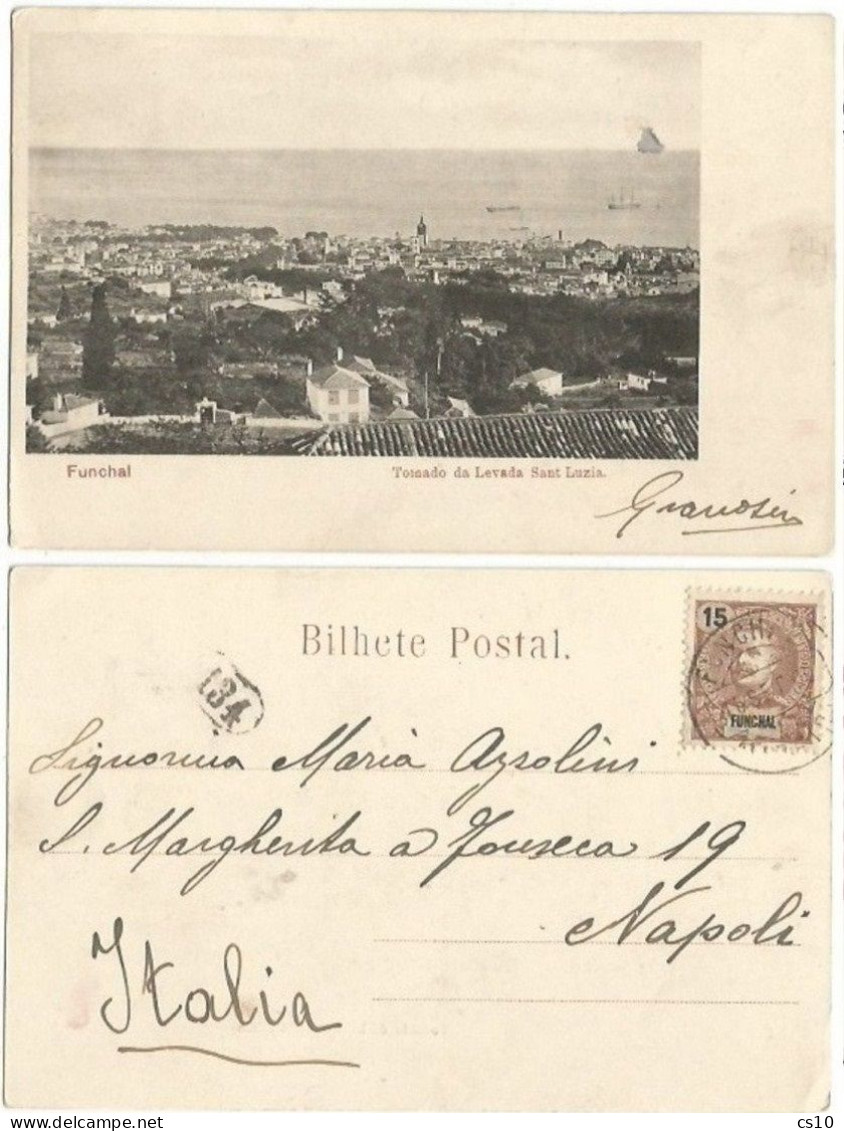 Funchal
Tomado da Levada Sant Luzia.
Bilhete Postal.
15
FUNCHAL
134
Signorina Maria
S. Margherita a Fonseca 19
Napoli
Italia
cs10
delcampe.net